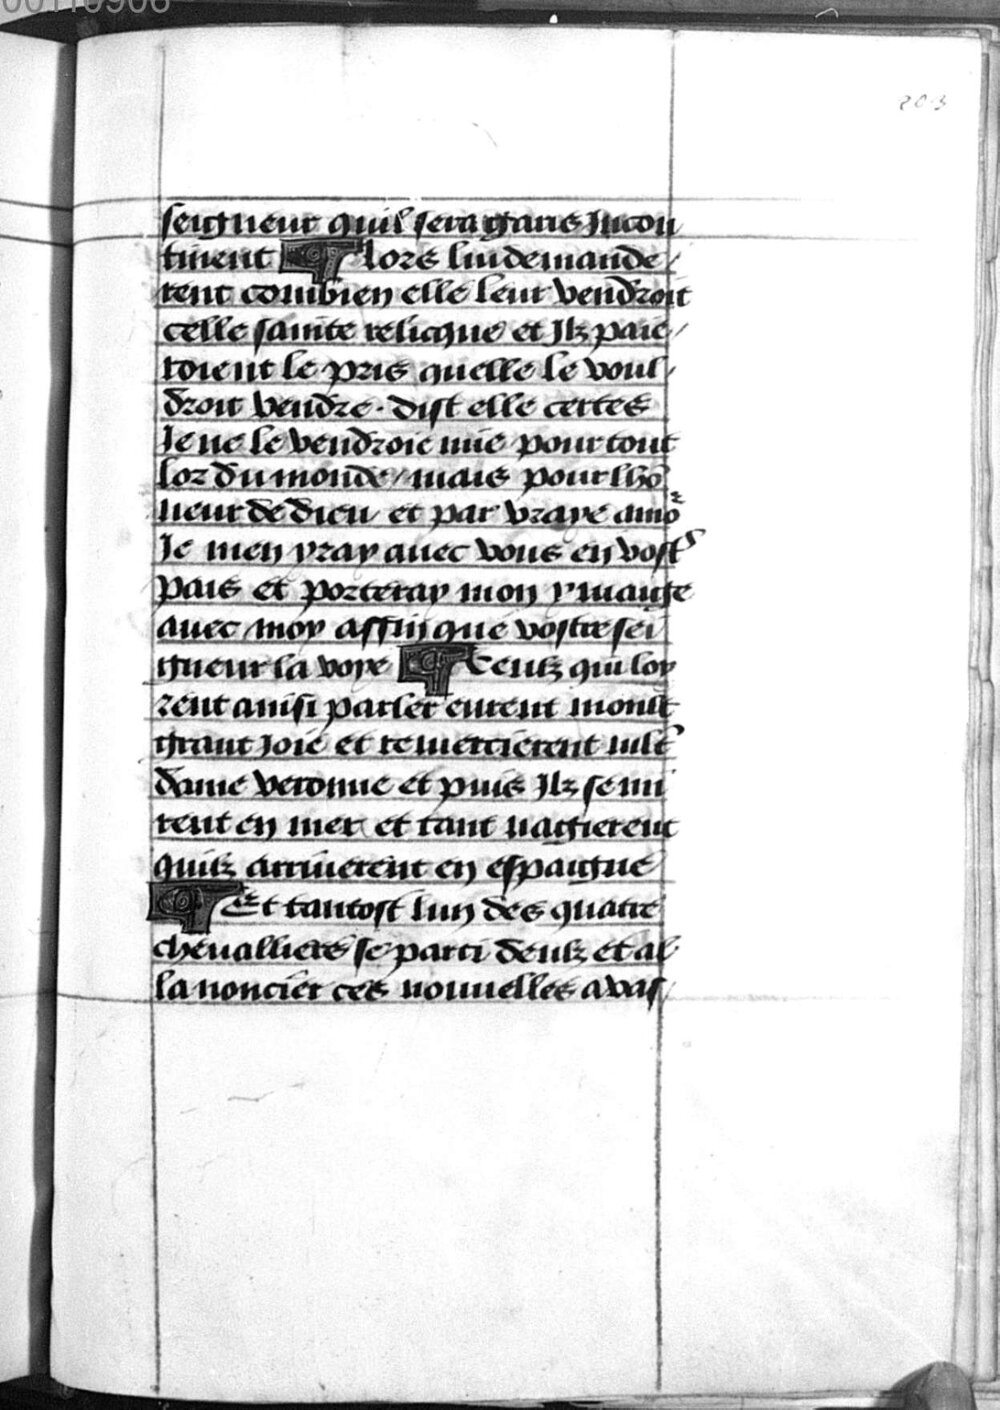 00110908
203
seigneur quil sera garis Incon
tinent ¶ Alors lui demande/
rent combien elle leur vendroit
celle sainte relicque et Ilz paie/
roient le pris quelle le voul/
droit vendre . dist elle certes
Je ne le vendroie mie pour tout
lor du monde / mais pour lhõ
neur de dieu et par vraye amo~
Je men yray avec vous en vost~
pais et porteray mon ymaige
avec moy affin que vostre sei
gneur la voye ¶ Ceulz qui loy
rent ainsi parler eurent moult
grant Joie et remercierent
dame veronne et puis Ilz se mi
rent en mer et tant nagierent
quilz arriverent en espaigne
¶ Et tantost lun des quatre
chevalliers se parti deulz et al
la noncier ces nouvelles a vas/